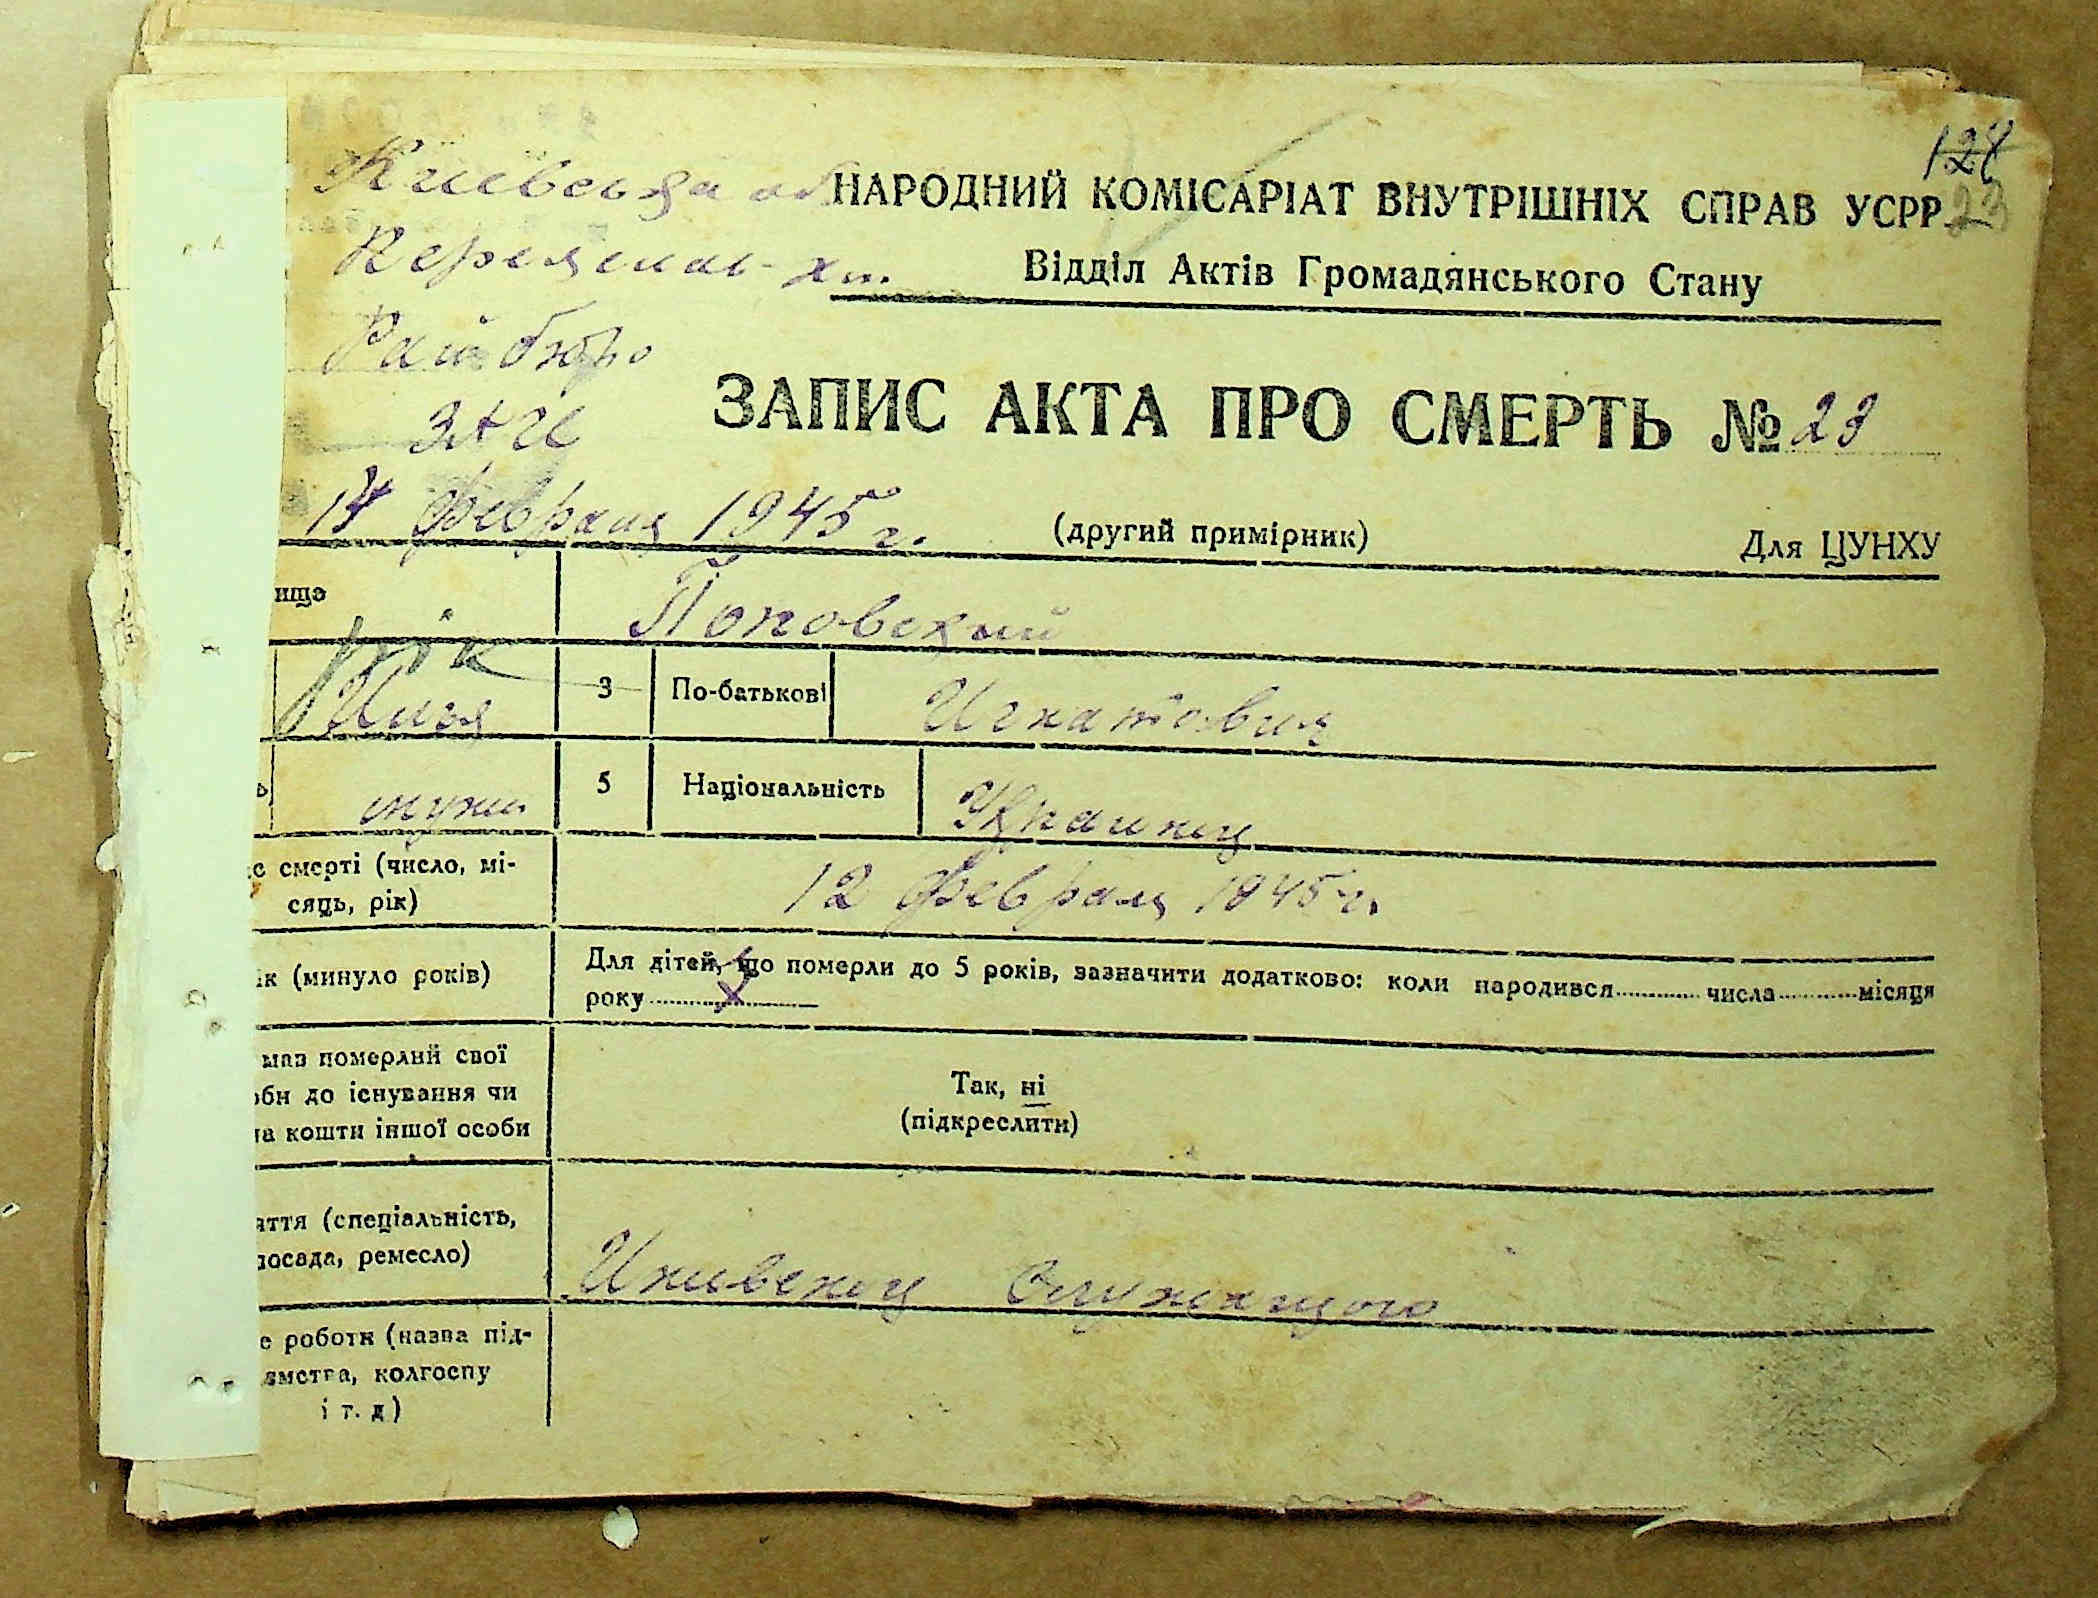 128
Киевская об НАРОДНИЙ КОМІСАРІАТ ВНУТРІШНІХ СПРАВ УСРР 23
Відділ Актів Громадянського Стану
Рай бюро
ЗАГС
ЗАПИС АКТА ПРО СМЕРТЬ № 23
14 февраля 1945 г. (другий примірник) Для ЦУНХУ
ище Поповский
Илья 3 По-батькові Игнатович
ь мужс 5 Національність Украинец
с смерті (число, мі-
сяць, рік) 12 февраля 1945 г.
ік (минуло років) Для дітей, що померли до 5 років, зазначити додатково: коли народився ............ числа ............ місяця
року ............
мав померлий свої
оби до існування чи
на кошти іншої особи
Так, ні
(підкреслити)
яття (спеціальність,
посада, ремесло) Иживенец Служащого
е роботи (назва під-
ємства, колгоспу
і т. д)